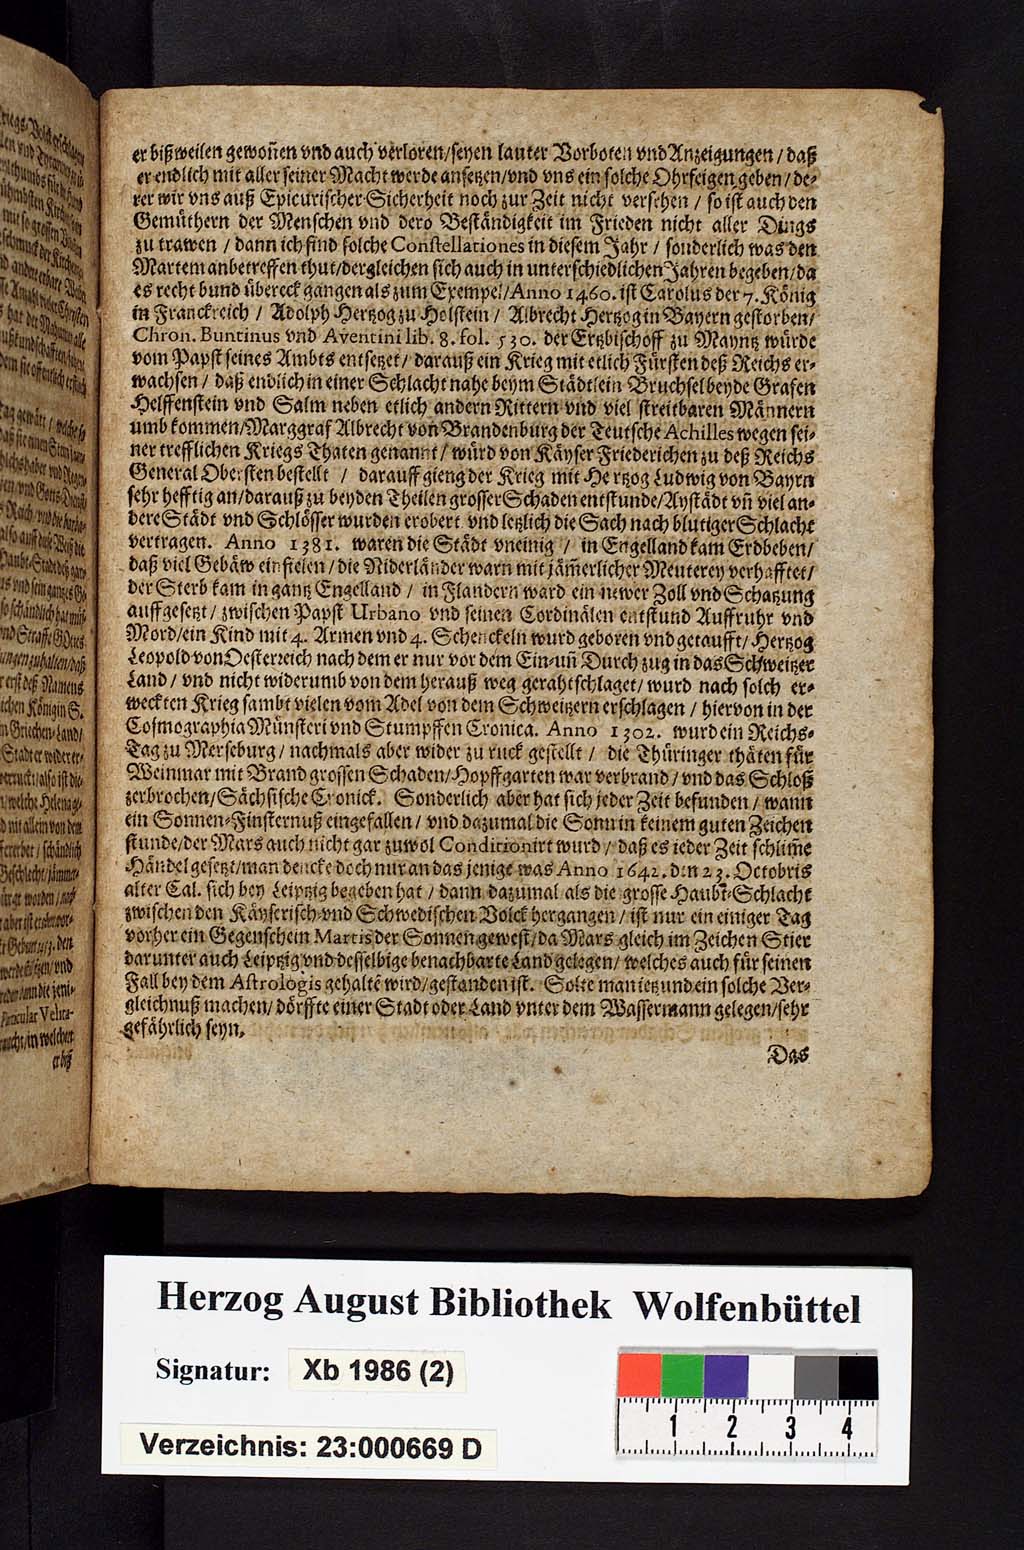 er bißweilen gewoñen vnd auch verloren/seyen lauter Vorboten vnd Anzeigungen/daß
er endlich mit aller seiner Macht werde ansetzen/vnd vns ein solche Ohrfeigen geben/de-
rer wir vns auß Epicurischer Sicherheit noch zur Zeit nicht versehen/so ist auch den
Gemüthern der Menschen vnd dero Beständigkeit im Frieden nicht aller Dings
zu trawen/dann ich find solche Constellationes in diesem Jahr/sonderlich was den
Martem anbetreffen thut/dergleichen sich auch in unterschiedlichen Jahren begeben/da
es recht bund übereck gangen als zum Exempel/Anno 1460. ist Carolus der 7. König
in Franckreich/Adolph Hertzog zu Holstein/Albrecht Hertzog in Bayern gestorben/
Chron. Buntinus vnd Aventini lib. 8. fol. 530. der Ertzbischoff zu Mayntz würde
vom Papst seines Ambts entsetzet/darauß ein Krieg mit etlich Fürsten deß Reichs er-
wachsen/daß endlich in einer Schlacht nahe beym Städtlein Bruchsel beyde Grafen
Helffenstein vnd Salm neben etlich andern Rittern vnd viel streitbaren Männern
umbkommen/Marggraf Albrecht von Brandenburg der Teutsche Achilles wegen sei-
ner trefflichen Kriegs Thaten genannt/würd von Käyser Friederichen zu deß Reichs
General Obersten bestellt/darauff gieng der Krieg mit Hertzog Ludwig von Bayrn
sehr hefftig an/darauß zu beyden Theilen grosser Schaden entstunde/Aystädt vñ viel an-
dere Städt vnd Schlösser wurden erobert vnd letzlich die Sach nach blutiger Schlacht
vertragen. Anno 1381. waren die Städt vneinig/in Engelland kam Erdbeben/
daß viel Gebäw einfielen/die Niderländer warn mit jäm̃erlicher Meuterey verhafftet/
der Sterb kam in gantz Engelland/in Flandern ward ein newer Zoll vnd Schatzung
auffgesetzt/zwischen Papst Urbano vnd seinen Cordinälen entstund Auffruhr vnd
Mord/ein Kind mit 4. Armen vnd 4. Schenckeln wurd geboren vnd getaufft/Hertzog
Leopold von Oesterreich nach dem er nur vor dem Ein-uñ Durchzug in das Schweitzer
Land/vnd nicht widerumb von dem herauß weg gerahtschlaget/wurd nach solch er-
weckten Krieg sambt vielen vom Adel von dem Schweitzern erschlagen/hiervon in der
Cosmographia Münsteri vnd Stumpffen Cronica. Anno 1302. wurd ein Reichs-
Tag zu Merseburg/nachmals aber wider zu ruck gestellt/die Thüringer thäten für
Weinmar mit Brand grossen Schaden/Hopffgarten war verbrand/vnd das Schloß
zerbrochen/Sächsische Cronick. Sonderlich aber hat sich jeder Zeit befunden/wann
ein Sonnen-Finsternuß eingefallen/vnd dazumal die Sonn in keinem guten Zeichen
stunde/der Mars auch nicht gar zu wol Conditionirt wurd/daß es ieder Zeit schlim̃e
Händel gesetzt/man dencke doch nur an das jenige was Anno 1642. den 23. Octobris
alter Cal. sich bey Leipzig begeben hat/dann dazumal als die grosse Haubt-Schlacht
zwischen den Käyserisch-vnd Schwedischen Volck hergangen/ist nur ein einiger Tag
vorher ein Gegenschein Martis der Sonnen gewest/da Mars gleich im Zeichen Stier
darunter auch Leiptzig vnd desselbige benachbarte Land gelegen/welches auch für seinen
Fall bey dem Astrologis gehaltẽ wird/gestanden ist. Solte man ietzund ein solche Ver-
gleichnuß machen/dörffte einer Stadt oder Land vnter dem Wassermann gelegen/sehr
gefährlich seyn.
Das
Herzog August Bibliothek Wolfenbüttel
Signatur: Xb 1986 (2)
Verzeichnis: 23:000669 D
1 2 3 4